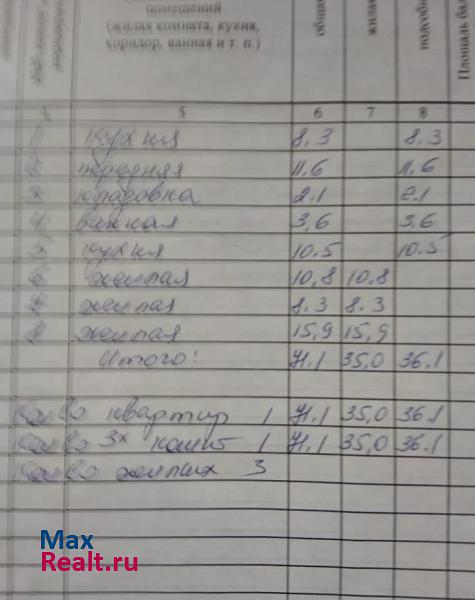 помещений
(жилая комната, кухня,
коридор, ванная и т. п.)
общая
жилая
подсобн
Площадь бал
4 5 6 7 8
1 кухня 8.3 8.3
2 передняя 11.6 11.6
3 кладовка 2.1 2.1
4 ванная 3,6 3.6
5 кухня 10.5 10.5
6 жилая 10,8 10.8
7 жилая 8.3 8.3
8 жилая 15,9 15,9
Итого: 71.1 35,0 36.1
Кол-во квартир 1 71.1 35,0 36.1
Кол-во 3х комн 1 71.1 35,0 36.1
Кол-во жилых 3
Max
Realt.ru